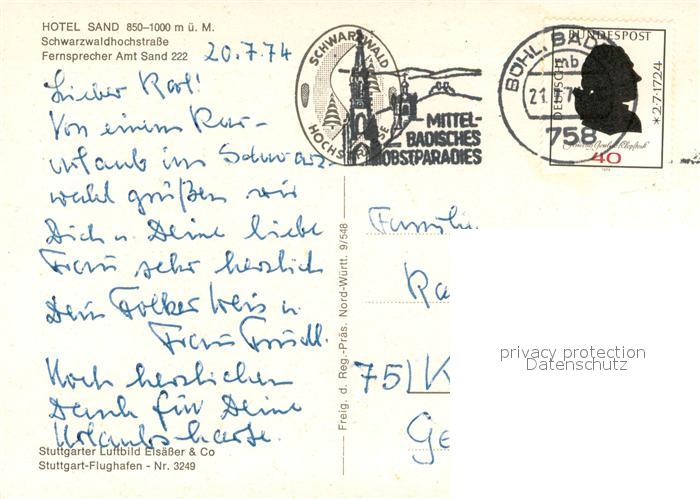 HOTEL SAND 850–1000 m ü. M.
Schwarzwaldhochstraße
Fernsprecher Amt Sand 222
20.7.74
Lieber Karl!
Von einem Kur-
urlaub im Schwarz-
wald grüßen wir
Dich u. Deine liebe
Frau sehr herzlich
Dein Folker Weis u.
Frau Trudl.
Noch herzlichen
Dank für Deine
Urlaubskarte.
Stuttgarter Luftbild Elsäßer & Co
Stuttgart-Flughafen - Nr. 3249
Freig. d. Reg.-Präs. Nord-Württ. 9/548
SCHWARZWALD
HOCHSTRASSE
MITTEL-
BADISCHES
OBSTPARADIES
BÜHL, BAD
mb
21.
758
DEUTSCHE BUNDESPOST
* 2·7·1724
40
Familie
Ka
75 K
Ge
privacy protection
Datenschutz